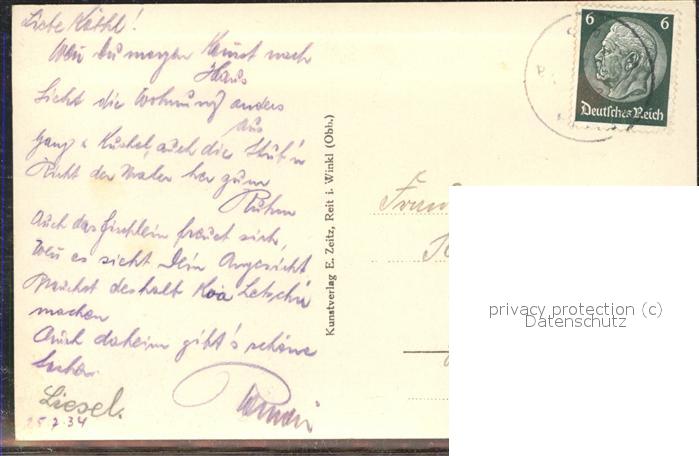 Liebe Käthl!
Wen Du morgen komst nach
Haus
Sicht die Wohnung anders
aus
Ganz d Kuchel, auch die Stub'n
Richt der Maler her zum
Ruhm
Auch das freuet sich,
Wen es sicht Dein Angesicht
Brauchst deshalb Koa Letschn
machen
Auch daheim gibt's schöne
Sachen.
Liesel.
25.7.34
Kunstverlag E. Zeitz, Reit i. Winkl (Obb.)
6 6
Deutsches Reich
privacy protection (c)
Datenschutz